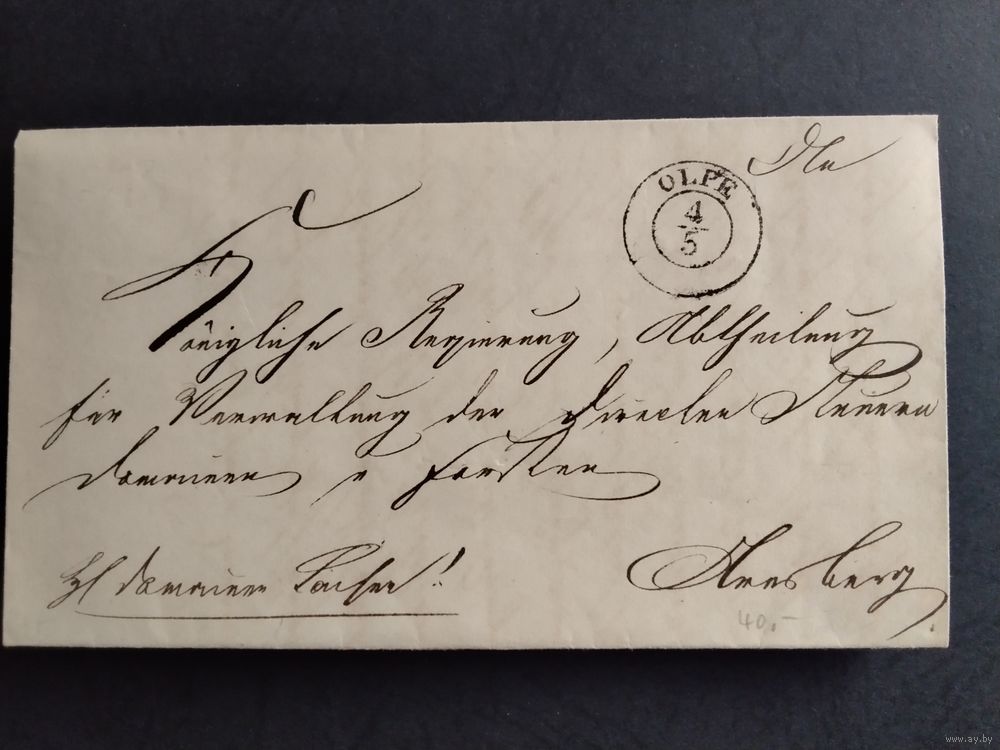 OLPE
4/5
Königliche Regierung, Abtheilung
für Verwaltung der directen Steuern
Domainen u Forsten
Arnsberg.
Domainen Sachen!
40.-
www.ay.by